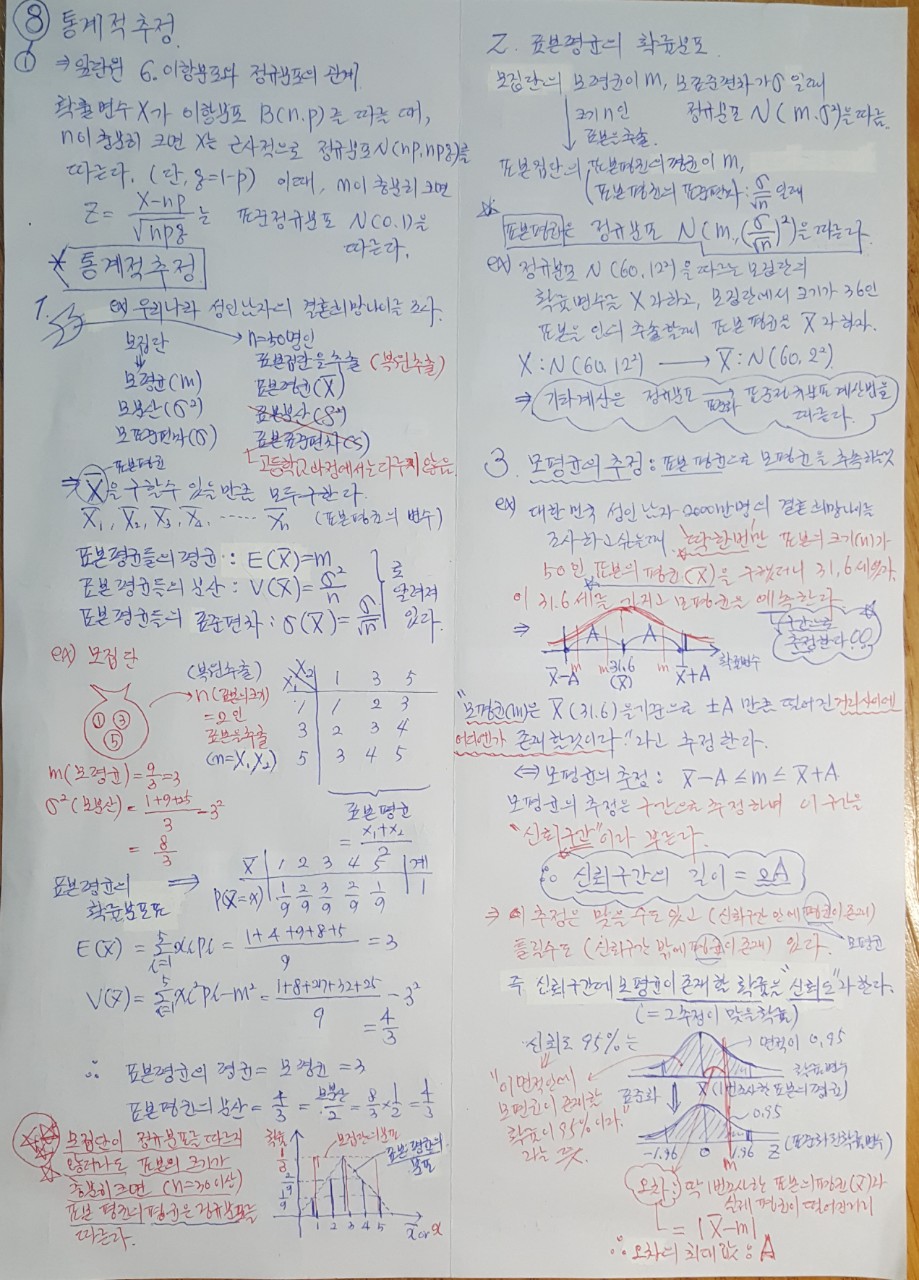 ⑧ 통계적 추정
①
⇒ 앞단원 6. 이항분포와 정규분포의 관계
확률변수 X가 이항분포 B(n.p)를 따를 때,
n이 충분히 크면 X는 근사적으로 정규분포 N(np, npq)를
따른다. (단, q=1-p) 이때, n이 충분히 크면
Z = X-np / √npq 는 표준정규분포 N(0.1)을
따른다.
* 통계적추정
1. ex) 우리나라 성인남자의 결혼희망나이를 조사
모집단 → n=50명인
표본집단을 추출 (복원추출)
모평균(m) 표본평균(X̄)
모분산(σ²) 표본분산(S²)
모표준편차(σ) 표본표준편차(S)
고등학교 과정에서는 다루지 않음
표본평균
⇒ X̄을 구할수 있을만큼 모두구한다.
X̄₁, X̄₂, X̄₃, X̄₂. ····· X̄ₙ (표본평균의 변수)
표본평균들의 평균 : E(X̄)=m
표본평균들의 분산 : V(X̄)=σ²/n
표본평균들의 표준편차 : σ(X̄)=σ/√n
로 알려져 있다.
ex) 모집단
① ③ ⑤
(복원추출)
n(표본의크기)
=2인
표본을추출
(n=X₁,X₂)
X₁ X₂ 1 3 5
1 1 2 3
3 2 3 4
5 3 4 5
m(모평균)=9/3=3
σ²(모분산)=1+9+25 / 3 - 3²
= 8/3
표본평균
= x₁+x₂ / 2
표본평균의 확률분포표 ⇒
X̄ 1 2 3 4 5 계
P(X̄=x) 1/9 2/9 3/9 2/9 1/9 1
E(X̄) = Σ⁵ᵢ₌₁ xᵢpᵢ = 1+4+9+8+5 / 9 = 3
V(X̄) = Σ⁵ᵢ₌₁ xᵢ²pᵢ-m² = 1+8+27+32+25 / 9 - 3²
= 4/3
∴ 표본평균의 평균 = 모평균 = 3
표본평균의 분산 = 4/3 = 모분산/2 = 8/3 × 1/2 = 4/3
모집단이 정규분포를 따르지
않더라도 표본의 크기가
충분히 크면 (n=30이상)
표본평균의 평균은 정규분포를
따른다.
확률
모집단의 분포
표본평균의 분포
1/3 2/9 1/9
1 2 3 4 5 x̄ or x
2. 표본평균의 확률분포
모집단의 모평균이 m, 모표준편차가 σ 일때
크기 n인 정규분포 N(m.σ²)을 따름.
표본을추출
표본집단의 표본평균의 평균이 m,
표본평균의 표준편차 : σ/√n 일때
표본평균은 정규분포 N(m,(σ/√n)²)을 따른다.
ex) 정규분포 N(60,12²)을 따르는 모집단의
확률변수를 X라하고, 모집단에서 크기가 36인
표본을 임의 추출할때 표본평균을 X̄라하자.
X : N(60,12²) → X̄ : N(60,2²)
⇒ 기타계산은 정규분포 → 표준정규분포 계산법을
표준화
따른다.
3. 모평균의 추정 : 표본평균으로 모평균을 추측하는것
ex) 대한민국 성인남자 2000만명의 결혼희망나이를
조사하고싶은데 "딱한번"만 표본의크기(n)가
50인 표본의 평균(X̄)을 구했더니 31.6세였다.
이 31.6세를 가지고 모평균을 예측한다.
구간으로 추정한다!
⇒ A A
X̄-A m m 31.6 m X̄+A 확률변수
(X̄)
"모평균(m)은 X̄(31.6)을기준으로 ±A 만큼 떨어진 거리사이에
어디엔가 존재할것이다."라고 추정한다.
⇔ 모평균의 추정 : X̄-A≤m≤X̄+A
모평균의 추정은 구간으로 추정하며 이 구간을
"신뢰구간"이라 부른다.
∴ 신뢰구간의 길이 = 2A
⇒ 이 추정은 맞을 수도 있고 (신뢰구간 안에 평균이존재)
틀릴수도 (신뢰구간 밖에 평균이 존재) 있다.
모평균
즉 신뢰구간에 모평균이 존재할 확률을 "신뢰도"라한다.
(=그추정이 맞을확률)
신뢰도 95%는
"이면적안에
모평균이 존재할
확률이 95%이다."
라는 뜻.
면적이 0.95
확률변수
X̄ (1번조사한 표본의평균)
표준화
0.95
-1.96 0 1.96 Z (표준화된확률변수)
m
오차 : 딱 1번조사한 표본의평균(X̄)과
실제 평균이 떨어진거리
= |X̄-m|
∴ 오차의 최대값 : A